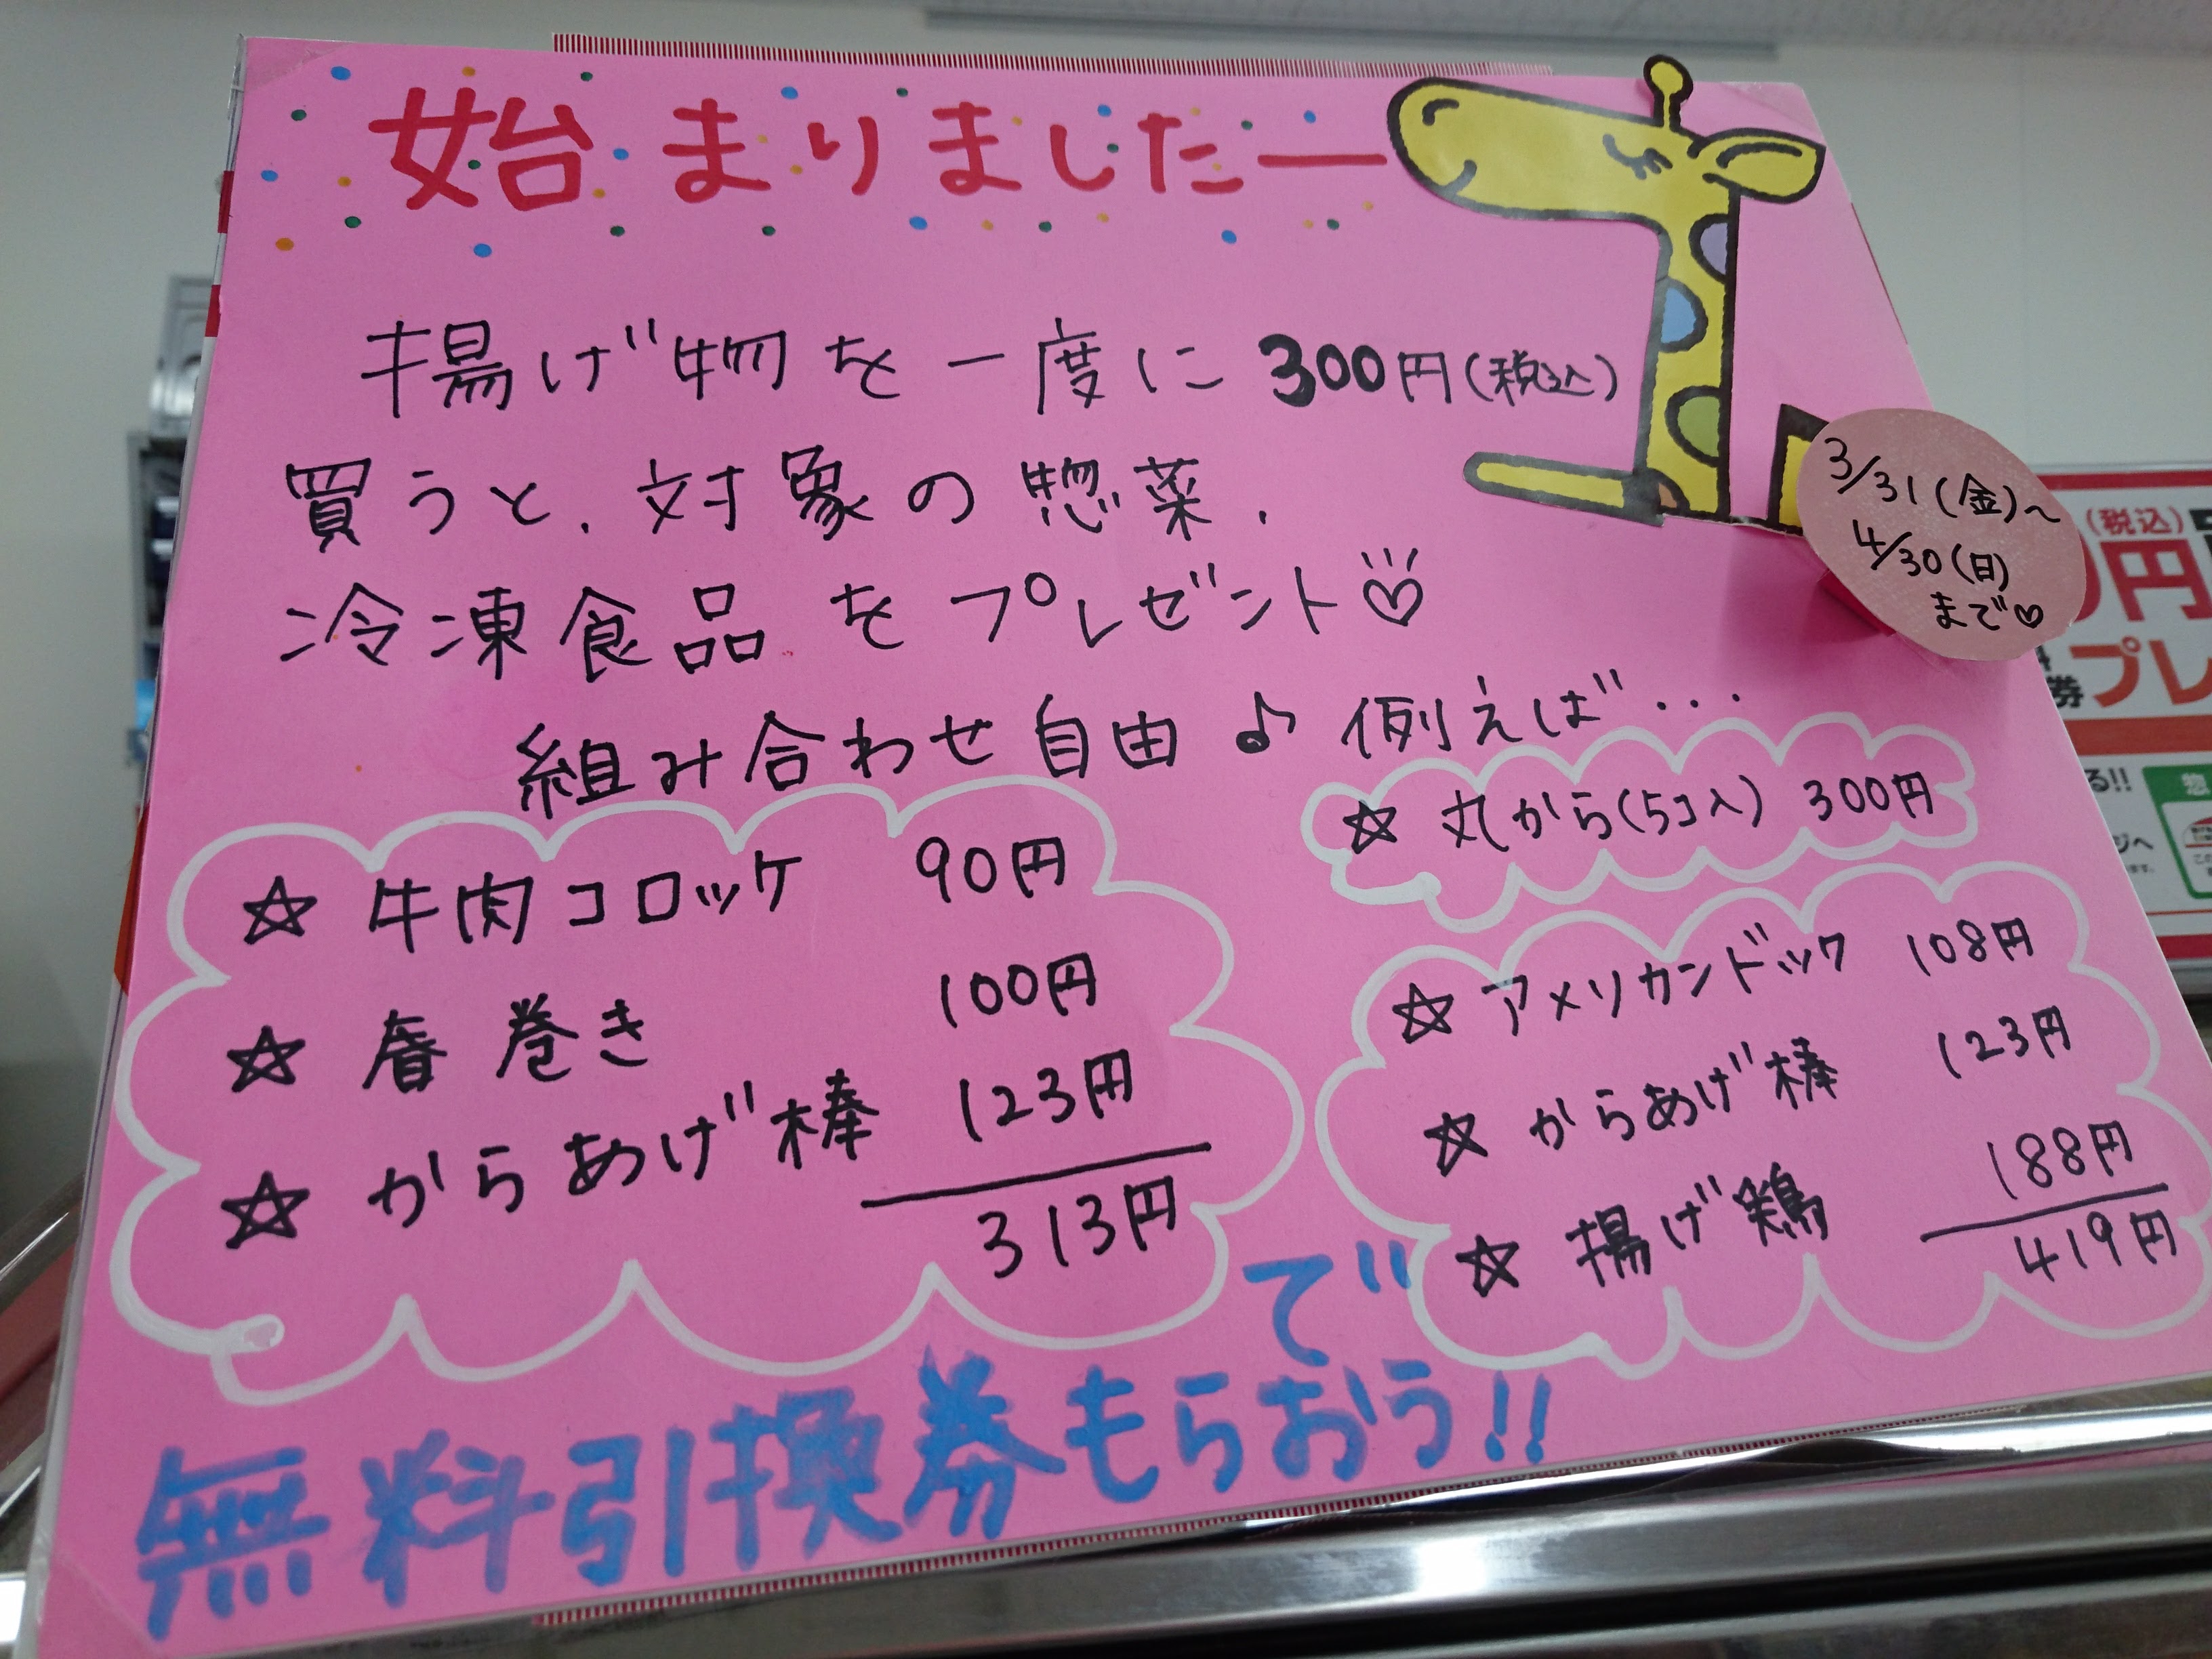 始まりましたー
揚げ物を一度に300円(税込)
買うと、対象の惣菜、
冷凍食品をプレゼント♡
3/31(金)~
4/30(日)
まで♡
組み合わせ自由♪例えば・・・
☆ 牛肉コロッケ 90円
☆ 春巻き 100円
☆ からあげ棒 123円
313円
☆ 丸から(5コ入) 300円
☆ アメリカンドック 108円
☆ からあげ棒 123円
☆ 揚げ鶏 188円
419円
で
無料引換券もらおう!!
(税込)
円
券プレ
る!!
惣
ジへ